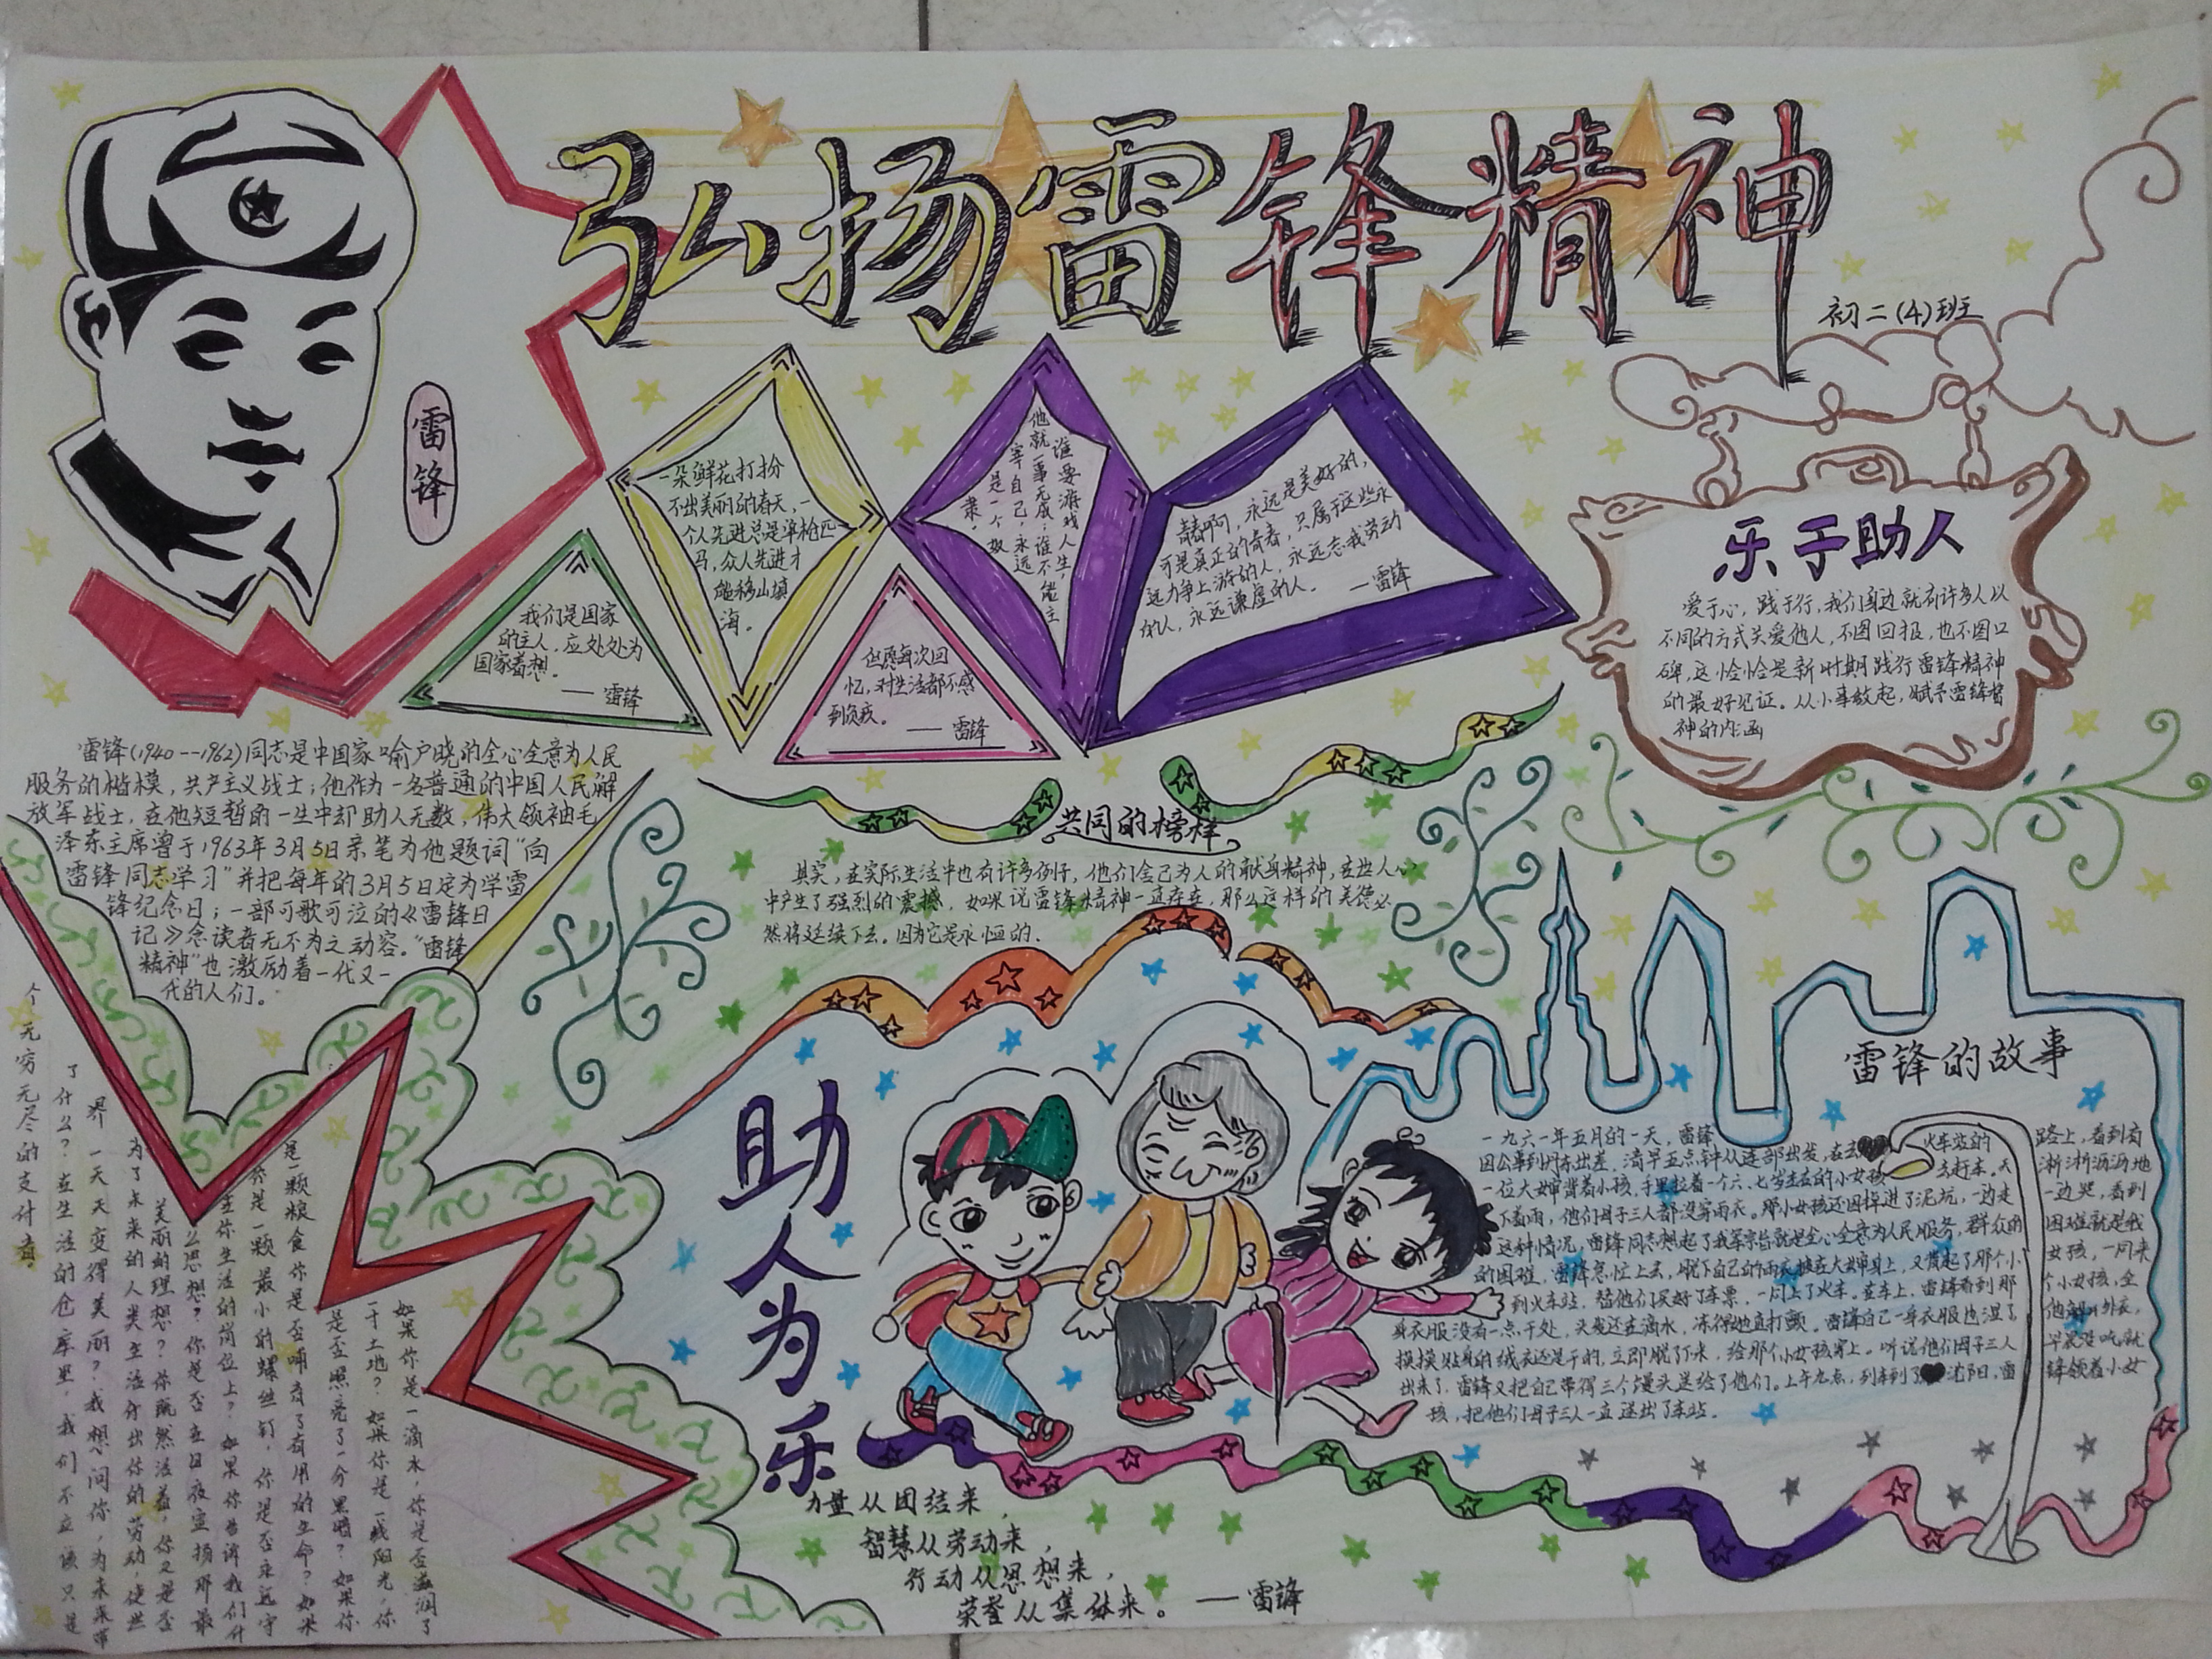 弘扬雷锋精神
初二(4)班
雷锋
一朵鲜花打扮
不出美丽的春天，一
个人先进总是单枪匹
马，众人先进才
能移山填
海。
谁要游戏人生，
他就一事无成；谁不能主
宰自己，永远
是一个奴
隶。
青春啊，永远是美好的，
可是真正的青春，只属于这些永
远力争上游的人，永远忘我劳动
的人，永远谦虚的人。 —雷锋
我们是国家
的主人，应处处为
国家着想。
——雷锋
但愿每次回
忆，对生活都不感
到负疚。
——雷锋
乐于助人
爱于心，践于行，我们身边就有许多人以
不同的方式关爱他人，不图回报，也不图口
碑，这恰恰是新时期践行雷锋精神
的最好见证。从小事做起，赋予雷锋精
神的内涵
雷锋(1940--1962)同志是中国家喻户晓的全心全意为人民
服务的楷模，共产主义战士；他作为一名普通的中国人民解
放军战士，在他短暂的一生中却助人无数，伟大领袖毛
泽东主席曾于1963年3月5日亲笔为他题词“向
雷锋同志学习”并把每年的3月5日定为学雷
锋纪念日；一部可歌可泣的《雷锋日
记》令读者无不为之动容。“雷锋
精神”也激励着一代又一
代的人们。
共同的榜样
其实，在实际生活中也有许多例子，他们舍己为人的献身精神，在世人心
中产生了强烈的震撼，如果说雷锋精神一直存在，那么这样的美德必
然将延续下去。因为它是永恒的.
如果你是一滴水，你是否滋润了
一寸土地？如果你是一线阳光，你
是否照亮了一分黑暗？如果你
是一颗粮食你是否哺育了有用的生命？如果
你是一颗最小的螺丝钉，你是否永远守
在你生活的岗位上？如果你告诉我们什
么思想？你是否在日夜宣扬那最
美丽的理想？你既然活着，你又是否
为了未来的人类生活付出你的劳动，使世
界一天天变得美丽？我想问你，为未来带
了什么？在生活的仓库里，我们不应该只是
个无穷无尽的支付者。
助人为乐
雷锋的故事
一九六一年五月的一天，雷锋
因公事到丹东出差，清早五点钟从连部出发，在去火车站的路上，看到有
一位大婶背着小孩，手里拉着一个六、七岁左右的小女孩去赶车。天淅淅沥沥地
下着雨，他们母子三人都没穿雨衣。那小女孩还因掉进了泥坑，一边走一边哭，看到
了这种情况，雷锋同志想起了我军宗旨就是全心全意为人民服务，群众的困难就是我
的困难，雷锋急忙上去，脱下自己的雨衣披在大婶身上，又背起了那个小女孩，一同来
到火车站，替他们买好了车票，一同上了火车。在车上，雷锋看到那个小女孩，全
身衣服没有一点干处，头发还在滴水，冻得她直打颤。雷锋自己一身衣服也湿了
摸摸贴身的绒衣还是干的，立即脱了下来，给那个小女孩穿上。听说他们母子三人早晨没吃就
出来了，雷锋又把自己带得三个馒头送给了他们。上午九点，列车到了沈阳，雷锋领着小女
孩，把他们母子三人一直送出了车站。
力量从团结来，
智慧从劳动来，
行动从思想来，
荣誉从集体来。 —雷锋